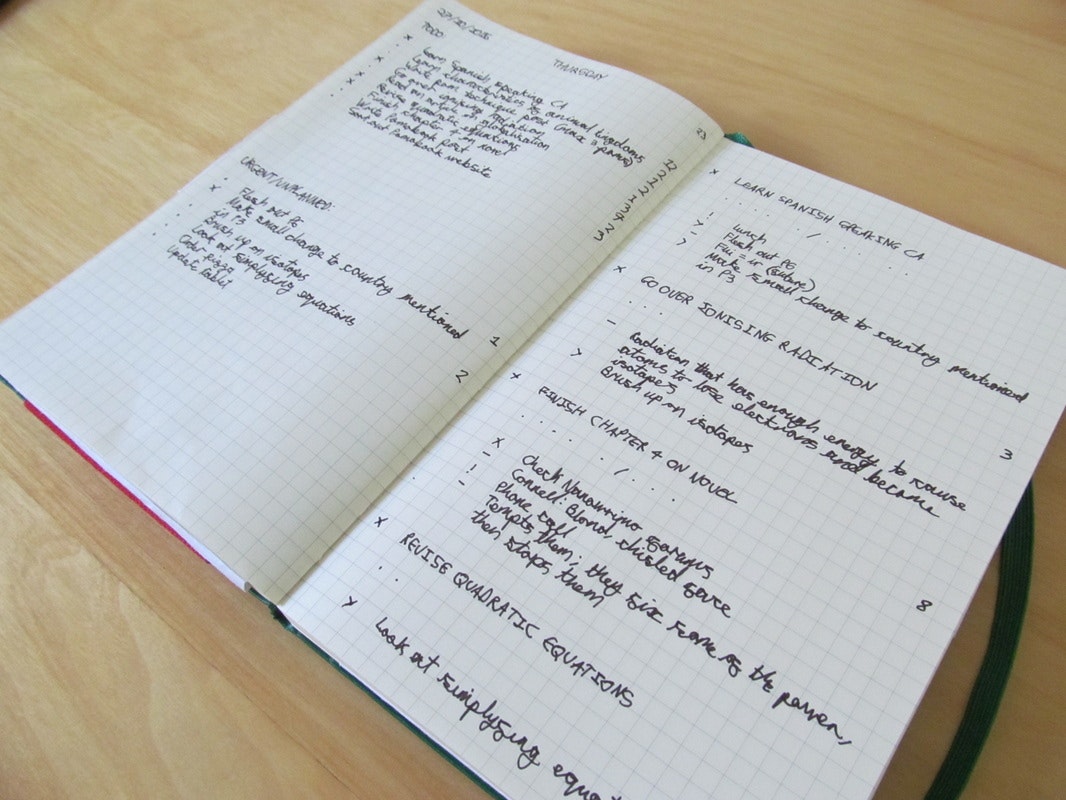 THURSDAY
TODO:
x Learn Spanish speaking CA
. Learn characteristics of animal kingdoms
Write Pomo technique post (max 3 pomos)
Go over ionising radiation
Read an article on globalisation
Revise quadratic equations
Finish chapter 4 on novel
Write Pamabook post
Sort out Pamabook website
URGENT/UNPLANNED:
Flesh out P6
Make small change to country mentioned
in P3
Brush up on isotopes
Look at simplysing equations
Order pizza
Update Fitbit
1
2
x LEARN SPANISH SPEAKING CA
. . . . / . . . . .
! Lunch
> Flesh out P6
- Fui = ir (future)
> Make small change to country mentioned
in P3
x GO OVER IONISING RADIATION
. .
- Radiation that has enough energy to cause
atoms to lose electrons and become
isotopes
> Brush up on isotopes
3
x FINISH CHAPTER 4 ON NOVEL
. . . . / . . .
x Check Nanowrimo forums
- Connell: Blond, chisled face
! Phone call
- Tempts them; they fix some of the power,
then stops them
8
x REVISE QUADRATIC EQUATIONS
. .
> Look at simplysing